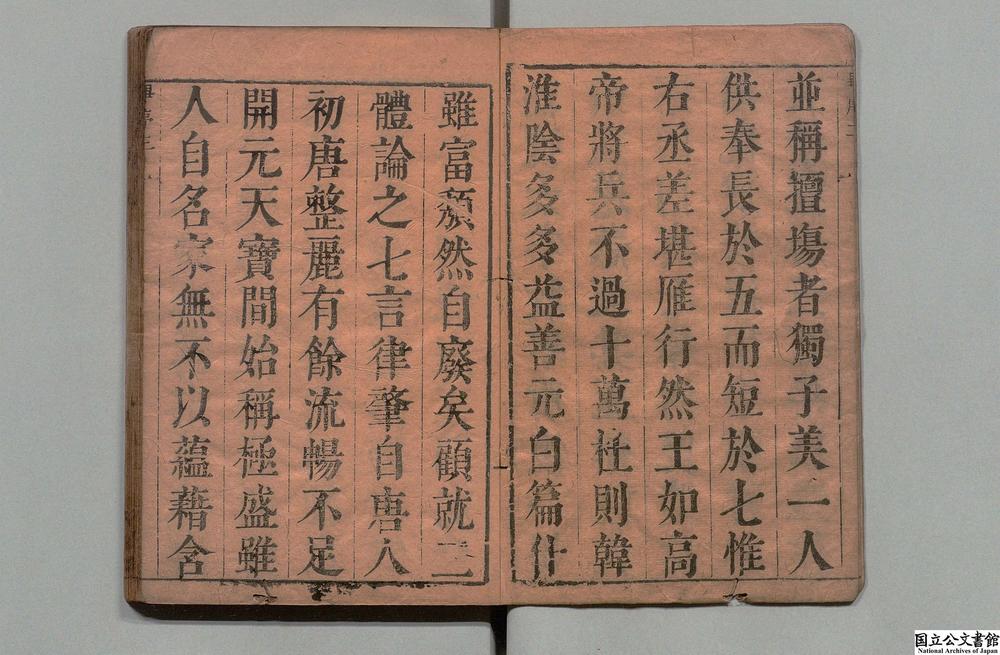 並稱擅塲者獨子美一人
供奉長於五而短於七惟
右丞差堪雁行然王如高
帝將兵不過十萬杜則韓
淮陰多多益善元白篇什
雖富頹然自廢矣顧就二
體論之七言律肇自唐人
初唐整麗有餘流暢不足
開元天寶間始稱極盛雖
人自名家無不以蘊藉含
国立公文書館
National Archives of Japan